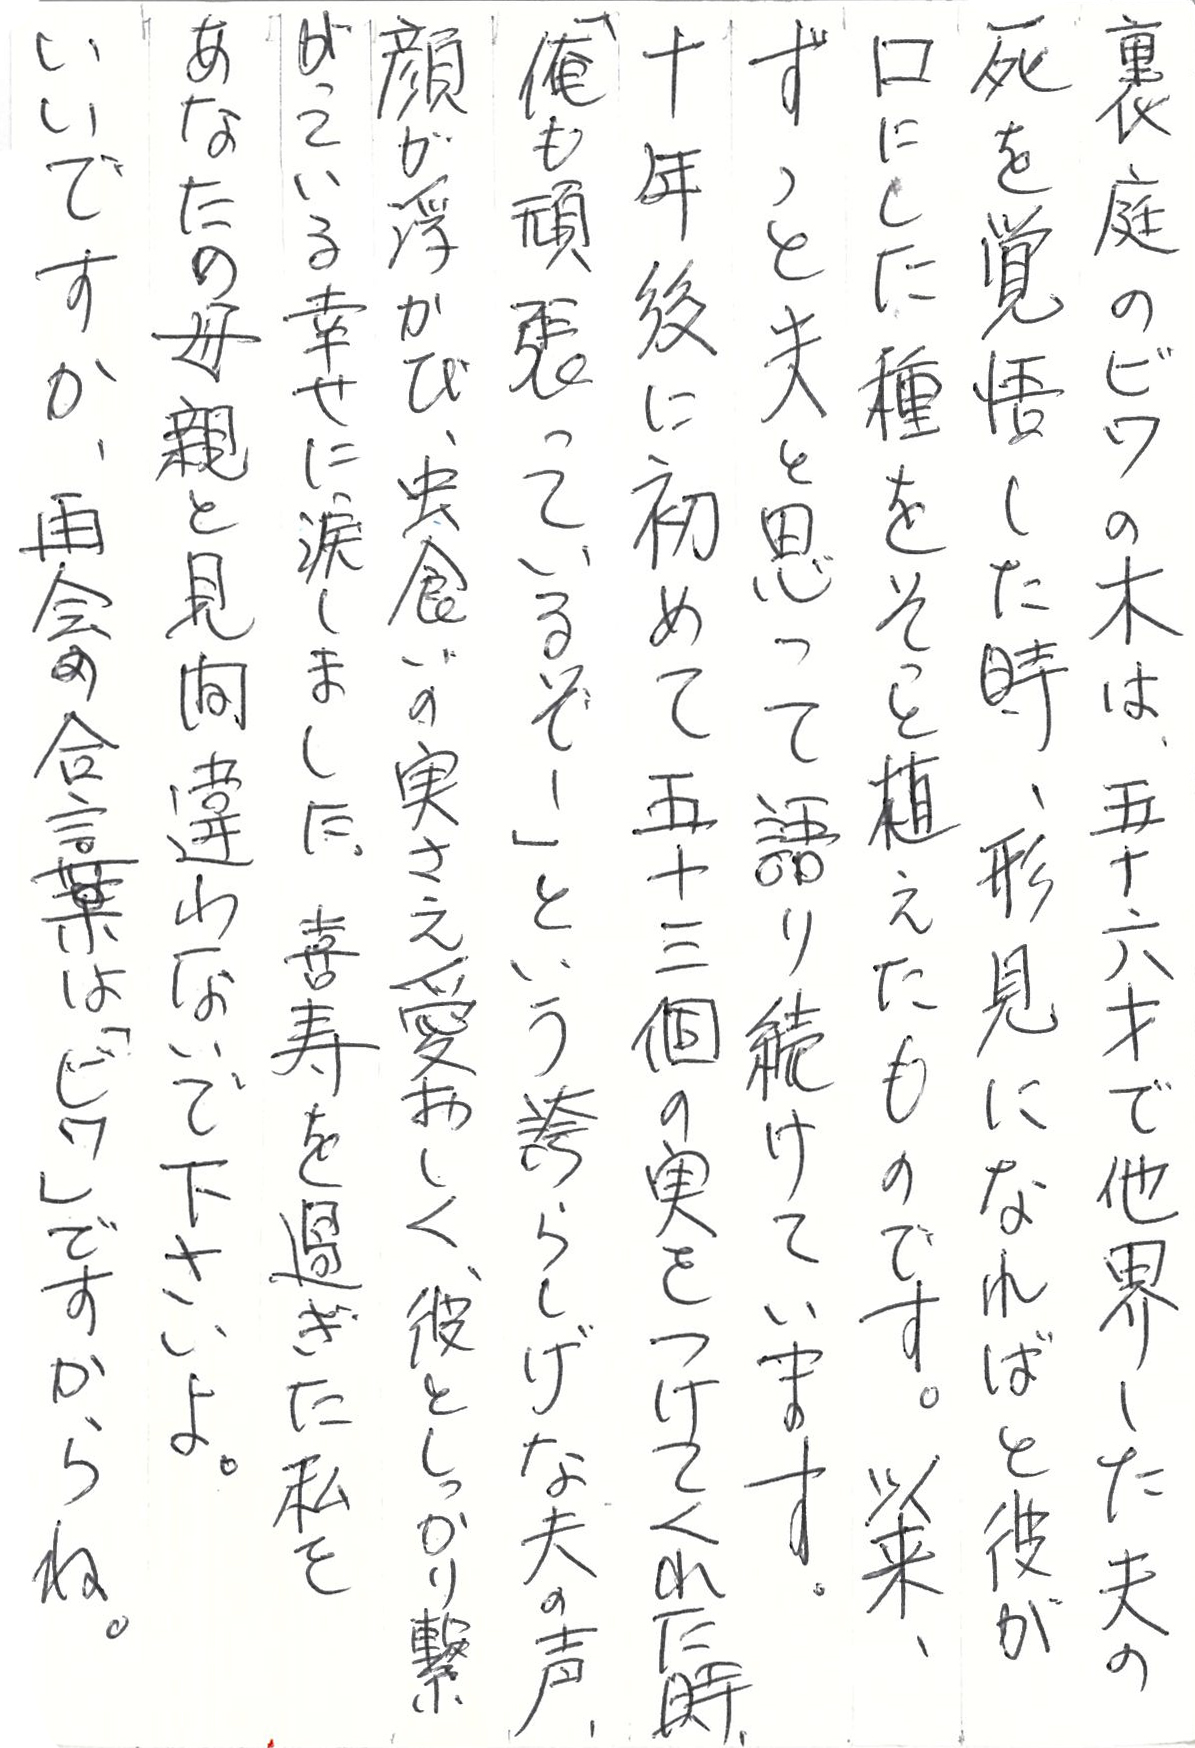 裏庭のビワの木は、五十六才で他界した夫の
死を覚悟した時、形見になればと彼が
口にした種をそっと植えたものです。以来、
ずっと夫と思って語り続けています。
十年後に初めて五十三個の実をつけてくれた時、
「俺も頑張っているぞー」という誇らしげな夫の声、
顔が浮かび、虫食いの実さえ愛おしく、彼としっかり繋
がっている幸せに涙しました。喜寿を過ぎた私を
あなたの母親と見間違わないで下さいよ。
いいですか、再会の合言葉は「ビワ」ですからね。